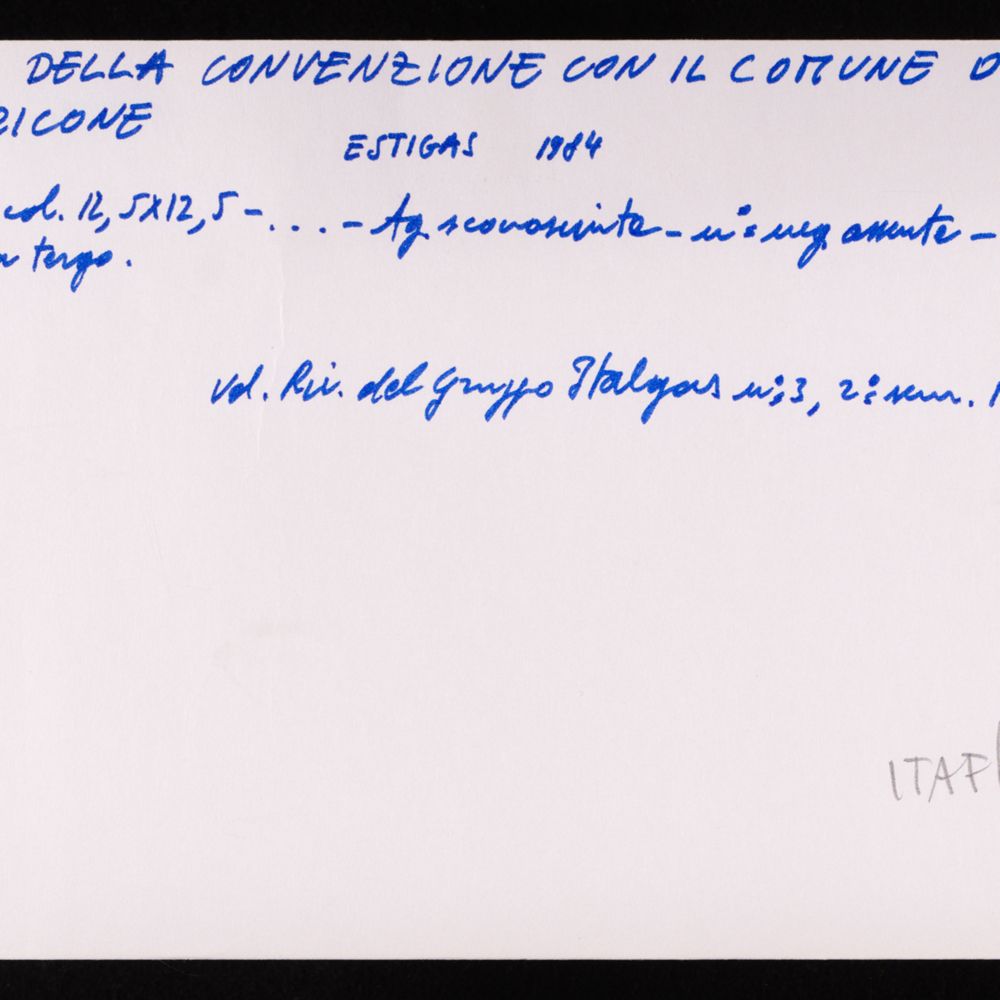 DELLA CONVENZIONE CON IL COMUNE D
ZICONE
ESTIGAS 1984
col. 12,5x12,5 - .... - Ag. sconosciuta - n° neg. assente -
tergo.
Vd. Riv. del Gruppo Italgas n° 3, 2° sem. 1
ITAF